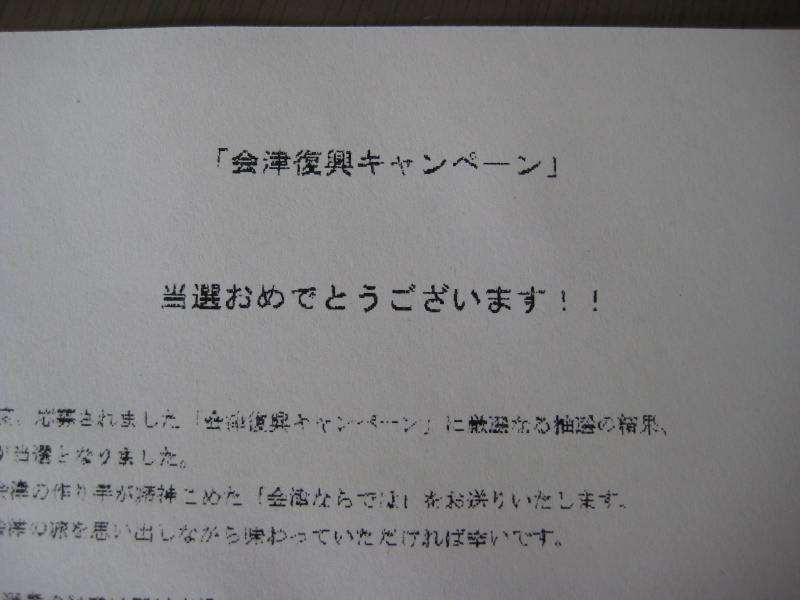 「会津復興キャンペーン」
当選おめでとうございます！！
、応募されました「会津復興キャンペーン」に厳選なる抽選の結果、
当選となりました。
会津の作り手が精神こめた「会津ならでは」をお送りいたします。
会津の旅を思い出しながら味わっていただければ幸いです。